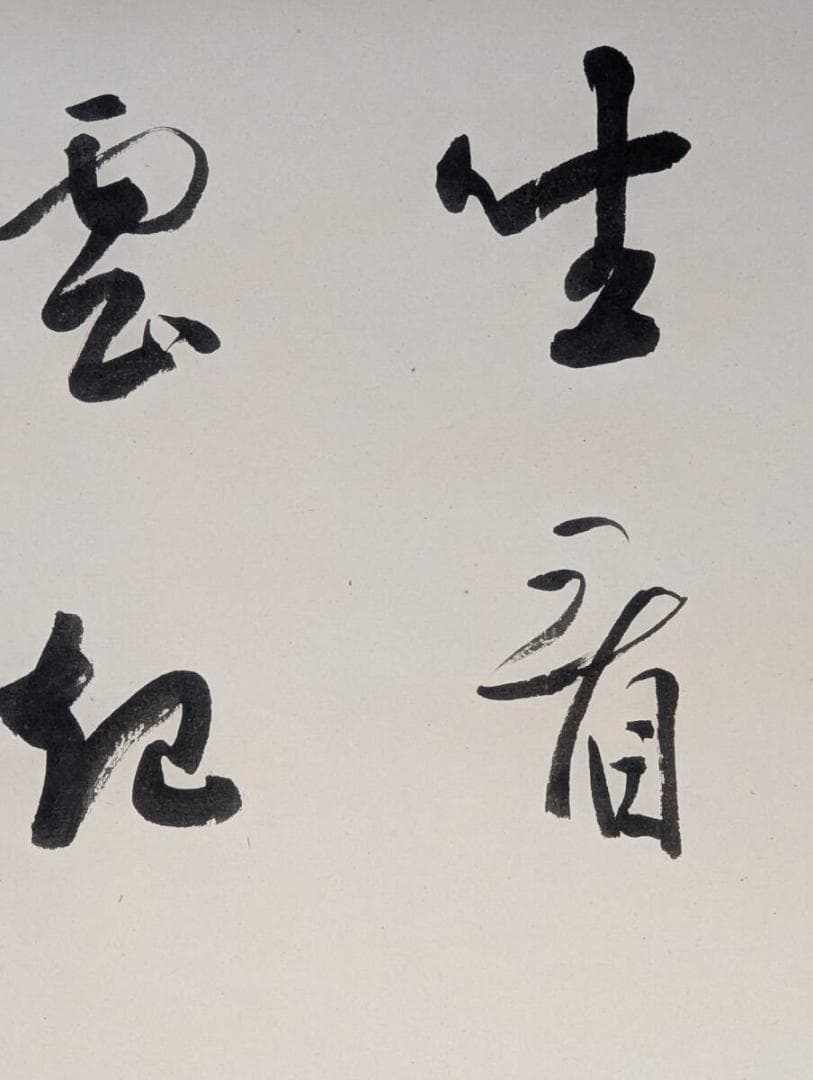 坐看
雲起